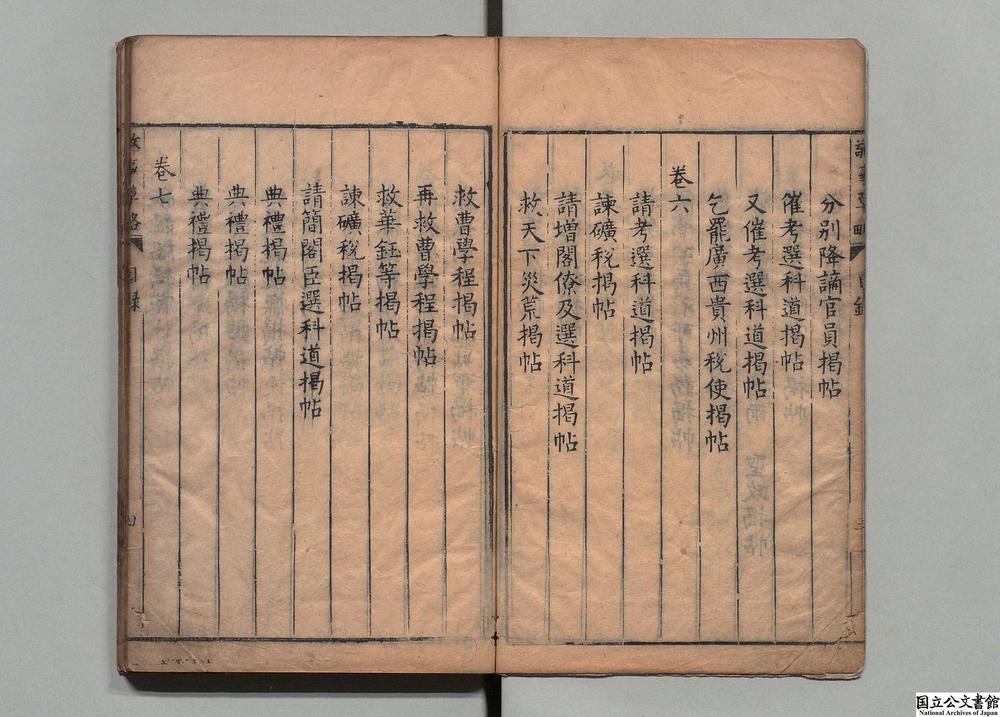 分别降謫官員揭帖
催考選科道揭帖
又催考選科道揭帖
乞罷廣西貴州稅使揭帖
卷六
請考選科道揭帖
諫礦稅揭帖
請增閣僚及選科道揭帖
救天下災荒揭帖
救曹學程揭帖
再救曹學程揭帖
救華鈺等揭帖
諫礦稅揭帖
請簡閣臣選科道揭帖
典禮揭帖
典禮揭帖
典禮揭帖
卷七
目録
四
国立公文書館
National Archives of Japan